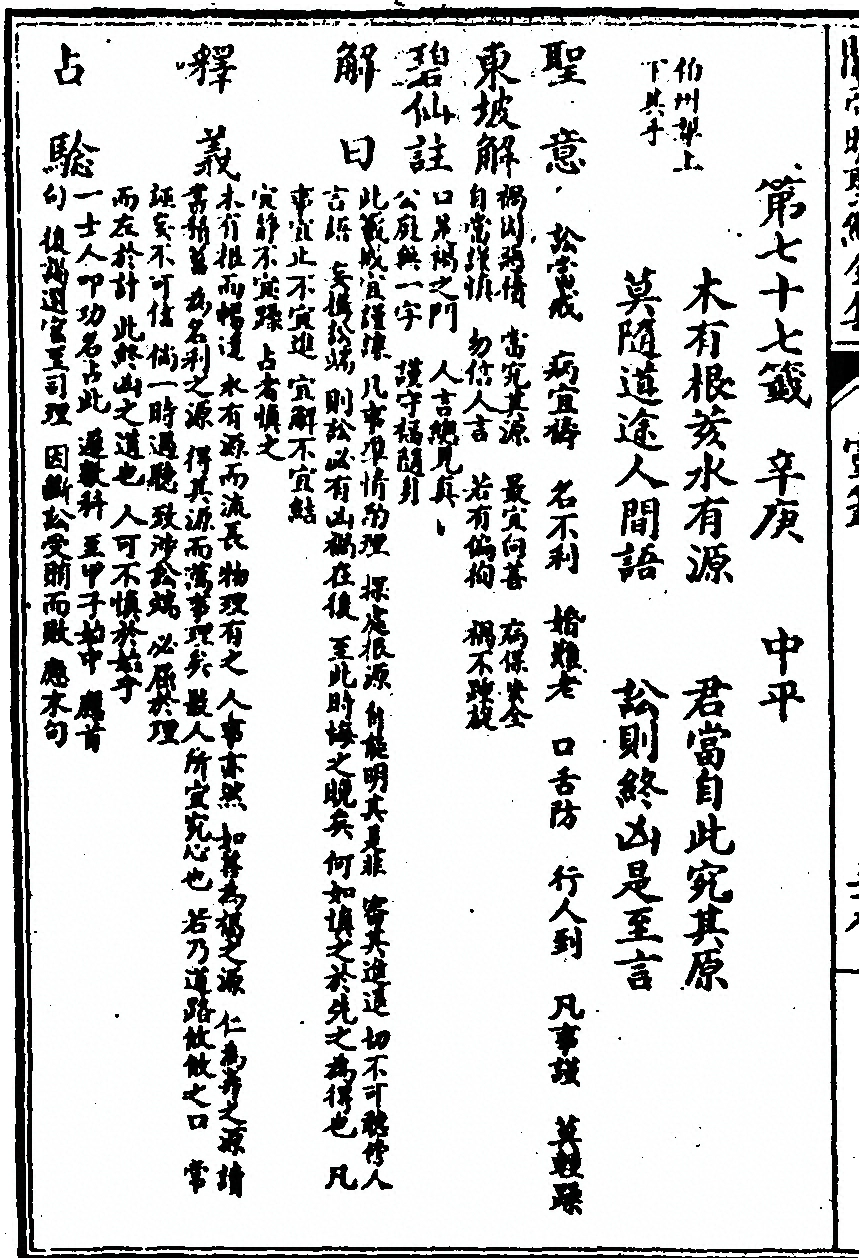 第七十七籤　辛庚　中平
木有根荄水有源　君當自此究其原
莫隨道途人間語　訟則終凶是至言
伯州犁上
下其手
聖意　訟當戒　病宜禱　名不利　婚難老　口舌防　行人到　凡事謹　莫輕躁
東坡解　禍因 當究其源　最宜向善　病保安全
自當謹慎　勿信人言　若有偏拘　禍不踵旋
碧仙註　口是禍之門　人言總見真
公庭無一字　謹守福隨身
解曰　此籤戒宜謹訟　凡事準情酌理　探處根源　自能明其是非　審其進退　切不可聽傍人
言語　妄搆訟端　則訟必有凶禍在後　至此時悔之晚矣　何如慎之於先之為得也　凡
事宜止不宜進　宜解不宜結
宜靜不宜躁　占者慎之
釋義　木有根而暢達　水有源而流長　物理有之　人事亦然　如善為福之源　仁為壽之源　讀
書積善　為名利之源　得其源而萬事理矣　故人所宜究心也　若乃道路 之口　常
誣妄不可信　倘一時過聽　致涉訟端　必屈於理
而在於訐　此終凶之道也　人可不慎於始乎
占驗　一士人叩功名占此　遲數科　至甲子始中　應首
句　後謁選官至司理　因斷訟受賄而敗　應末句